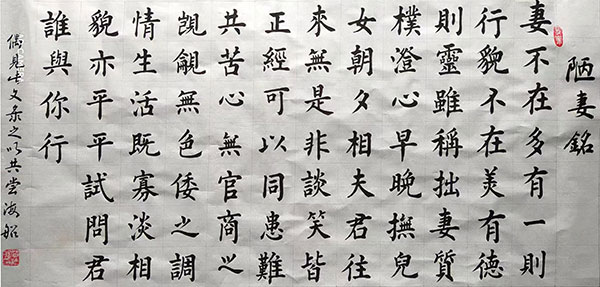 陋妻銘
妻不在多有一則
行貌不在美有德
則靈雖稱拙妻質
樸澄心早晚撫兒
女朝夕相夫君往
來無是非談笑皆
正經可以同患難
共苦心無官商之
覬覦無色倭之調
情生活既寡淡相
貌亦平平試問君
誰與你行
偶見此文录之以共赏海船